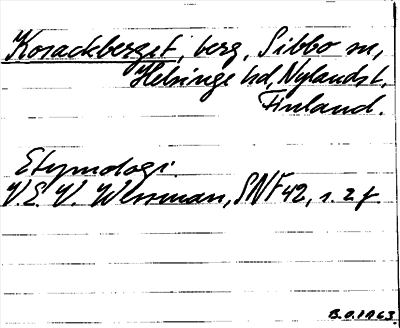 Kosackberget, berg, Sibbo sn,
Helsinge hd, Nylandst,
Finland.
Etymologi.
V.E.V. Wessman, SNF 42, s. 2 f.
B.O. 1963.